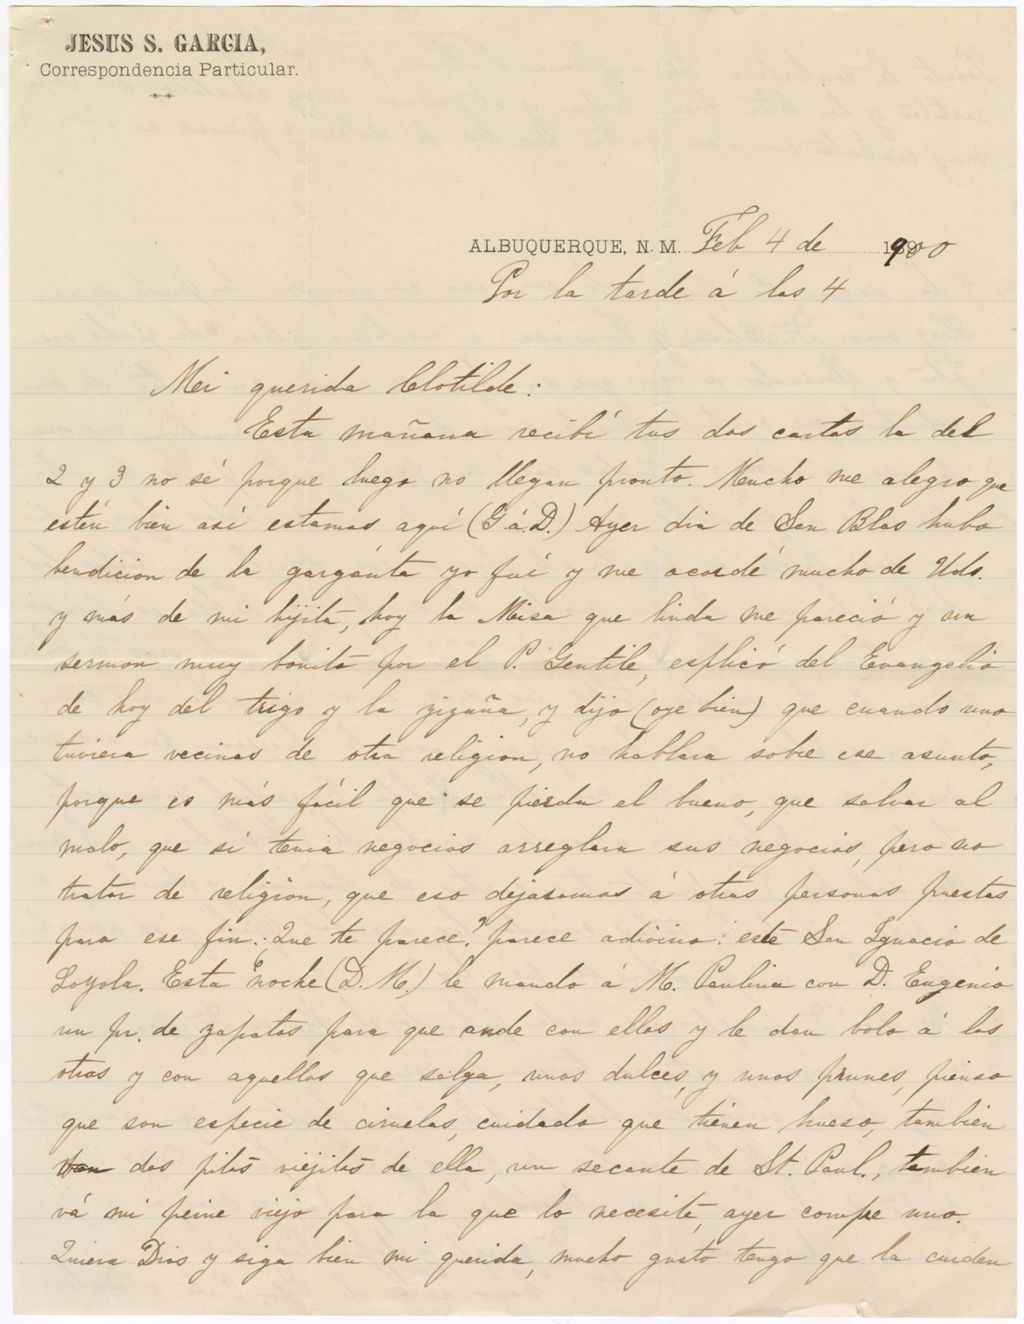 JESUS S. GARCIA,
Correspondencia Particular.
ALBUQUERQUE, N. M. Feb 4 de 1900
Por la tarde á las 4
Mi querida Clotilde:
Esta mañana recibí tus dos cartas la del
2 y 3 no sé porque luego no llegan pronto. Mucho me alegro que
estén bien así estamos aquí (G. á. D.) Ayer dia de San Blas hubo
bendicion de la garganta yo fuí y me acordé mucho de Uds.
y más de mi hijita, hoy la Misa que linda me pareció y un
sermon muy bonito por el P. Gentile, esplicó del Evangelio
de hoy del trigo y la zizaña, y dijo (oye bien) que cuando uno
tuviera vecinas de otra religion, no hablara sobre ese asunto,
porque es más fácil que se pierda el bueno, que salvar al
malo, que si tenia negocios arreglara sus negocios, pero no
tratar de religion, que eso dejasamos á otras personas puestas
para ese fin. ¿Que te parece? parece adivino: este San Ignacio de
Loyola. Esta noche (D. M.) le mando á M. Paulina con D. Eugenio
un pr. de zapatos para que ande con ellos y le dan bola á los
otros y con aquellos que salga, unos dulces, y unos prunes, pienso
que son especie de ciruelas, cuidado que tienen hueso, tambien
van dos pitos viejitos de ella, un secante de St. Paul., tambien
vá mi peine viejo para la que lo necesite, ayer compre uno.
Quiera Dios y siga bien mi querida, mucho gusto tengo que la cuiden